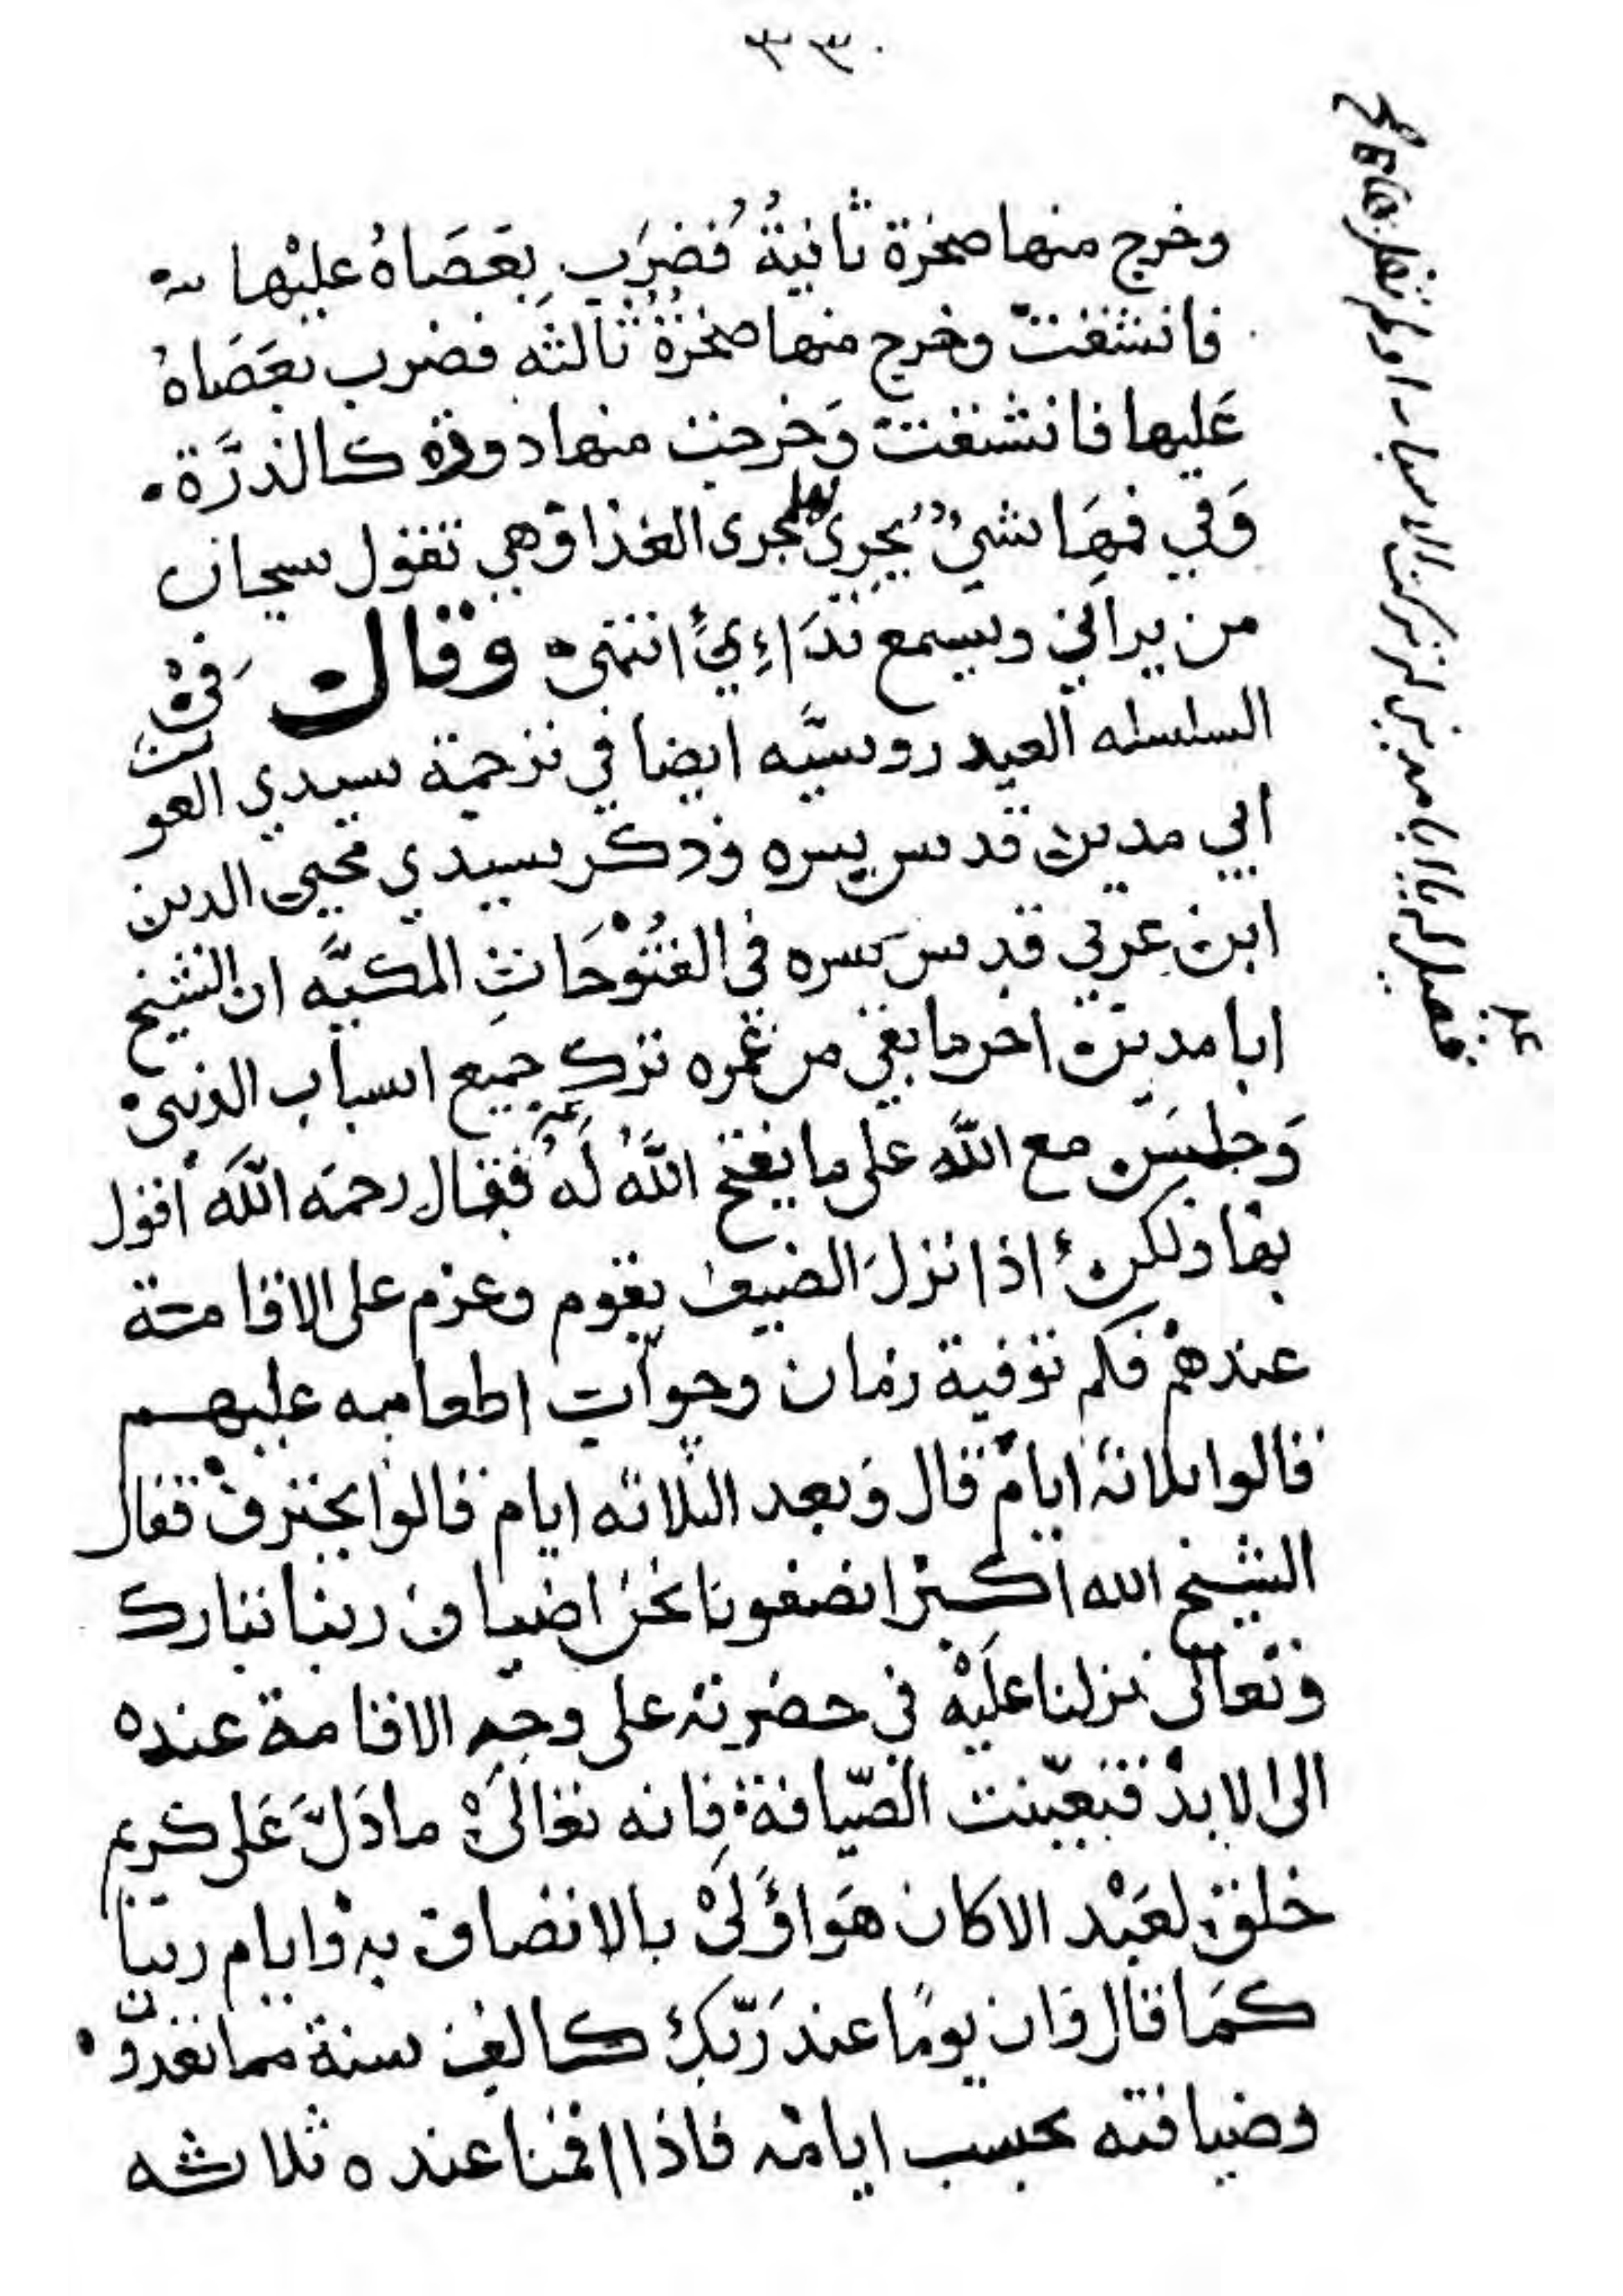 ٣٣٠
وخرج منها صخرة ثانية فضرب بعصاه عليها
فانشقت وخرج منها صخرة ثالثه فضرب بعصاه
عليها فانشقت وخرجت منها دودة كالذرة
وفي فمها شيء يجري لها مجرى الغذا وهي تقول سبحان
من يراني ويسمع نداءي انتهى وقال في
السلسله العيدروسيه ايضا في ترجمة سيدي الغوث
ابي مدين قدس سره وذكر سيدي محيي الدين
ابن عربي قدس سره في الفتوحات المكيه ان الشيخ
ابا مدين اخر ما بقي من عمره ترك جميع اسباب الدنيى
وجلس مع الله على ما يفتح الله له فقال رحمه الله اقول
بها ولكن اذا نزل الضيف بقوم وعزم على الاقامة
عندهم فكم توفية زمان وجواب اطعامه عليهم
قالوا ثلاثة ايام قال وبعد الثلاثه ايام قالوا يحترف فقال
الشيخ الله اكبر انصفونا نحن اضياف ربنا تبارك
وتعالى نزلنا عليه في حضرته على وجه الاقامة عنده
الى الابد فتعينت الضيافة فانه تعالى ما دل على كريم
خلق لعبد الا كان هو اولى بالاتصاف به وايام ربنا
كما قال وان يوما عند ربك كالف سنة مما تعدون
وضيافته بحسب ايامه فاذا اقمنا عنده ثلاثه